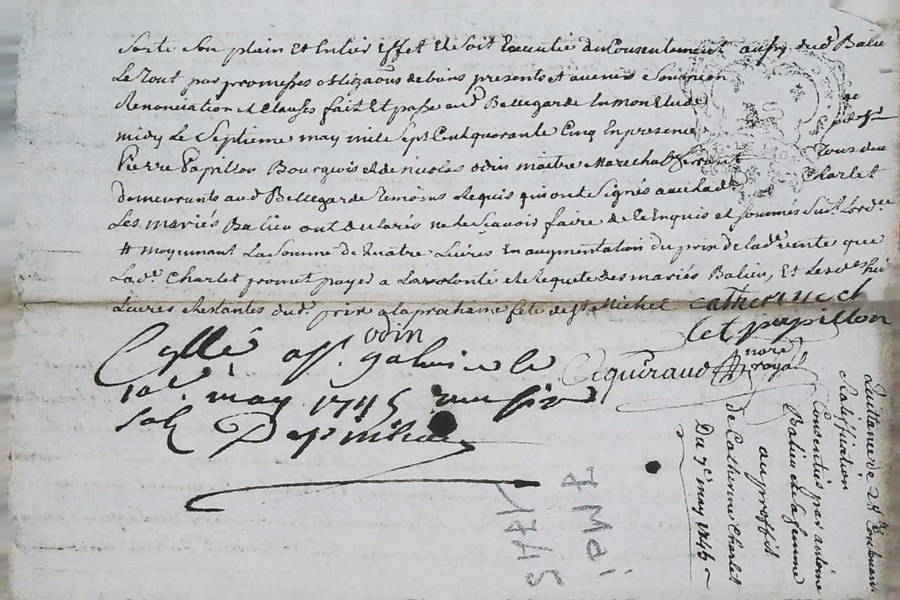 Sorte Son plain Et Entier Effet et Soit Executée du Consentement aussy dud Balieu
Le Tout par promesses obligaons de biens presents et avenir Soumion
Renonciation et Clauses fait Et passé aud Bellegarde En mon Etude
midy Le Septieme may mil Sept Cent quarante Cinq En presence de
Pierre Papillon Bourgeois et de nicolas odin maitre Marechal
demeurants aud Bellegarde Temoins Requis qui ont Signés avec lad Charlet
Les mariés Balieu ont declarés ne le Scavoir faire de ce Enquis et Sommés
# moyennant La Somme de quatre Livres En augmentation du prix de lad vente que
Lade Charlet promet payer a La volonté et Requete des mariés Balieu, Et Les
Livres Restantes dud prix a la prochaine fete de St Michel Catherine ch
let papillon
odin
nore
royal
may 1745
sols
7 Mai
1745
Quittance de
Ratification
Consenties par antoine
Balieu et sa femme
au proffit
de Catherine Charlet
Du 7e may 1745